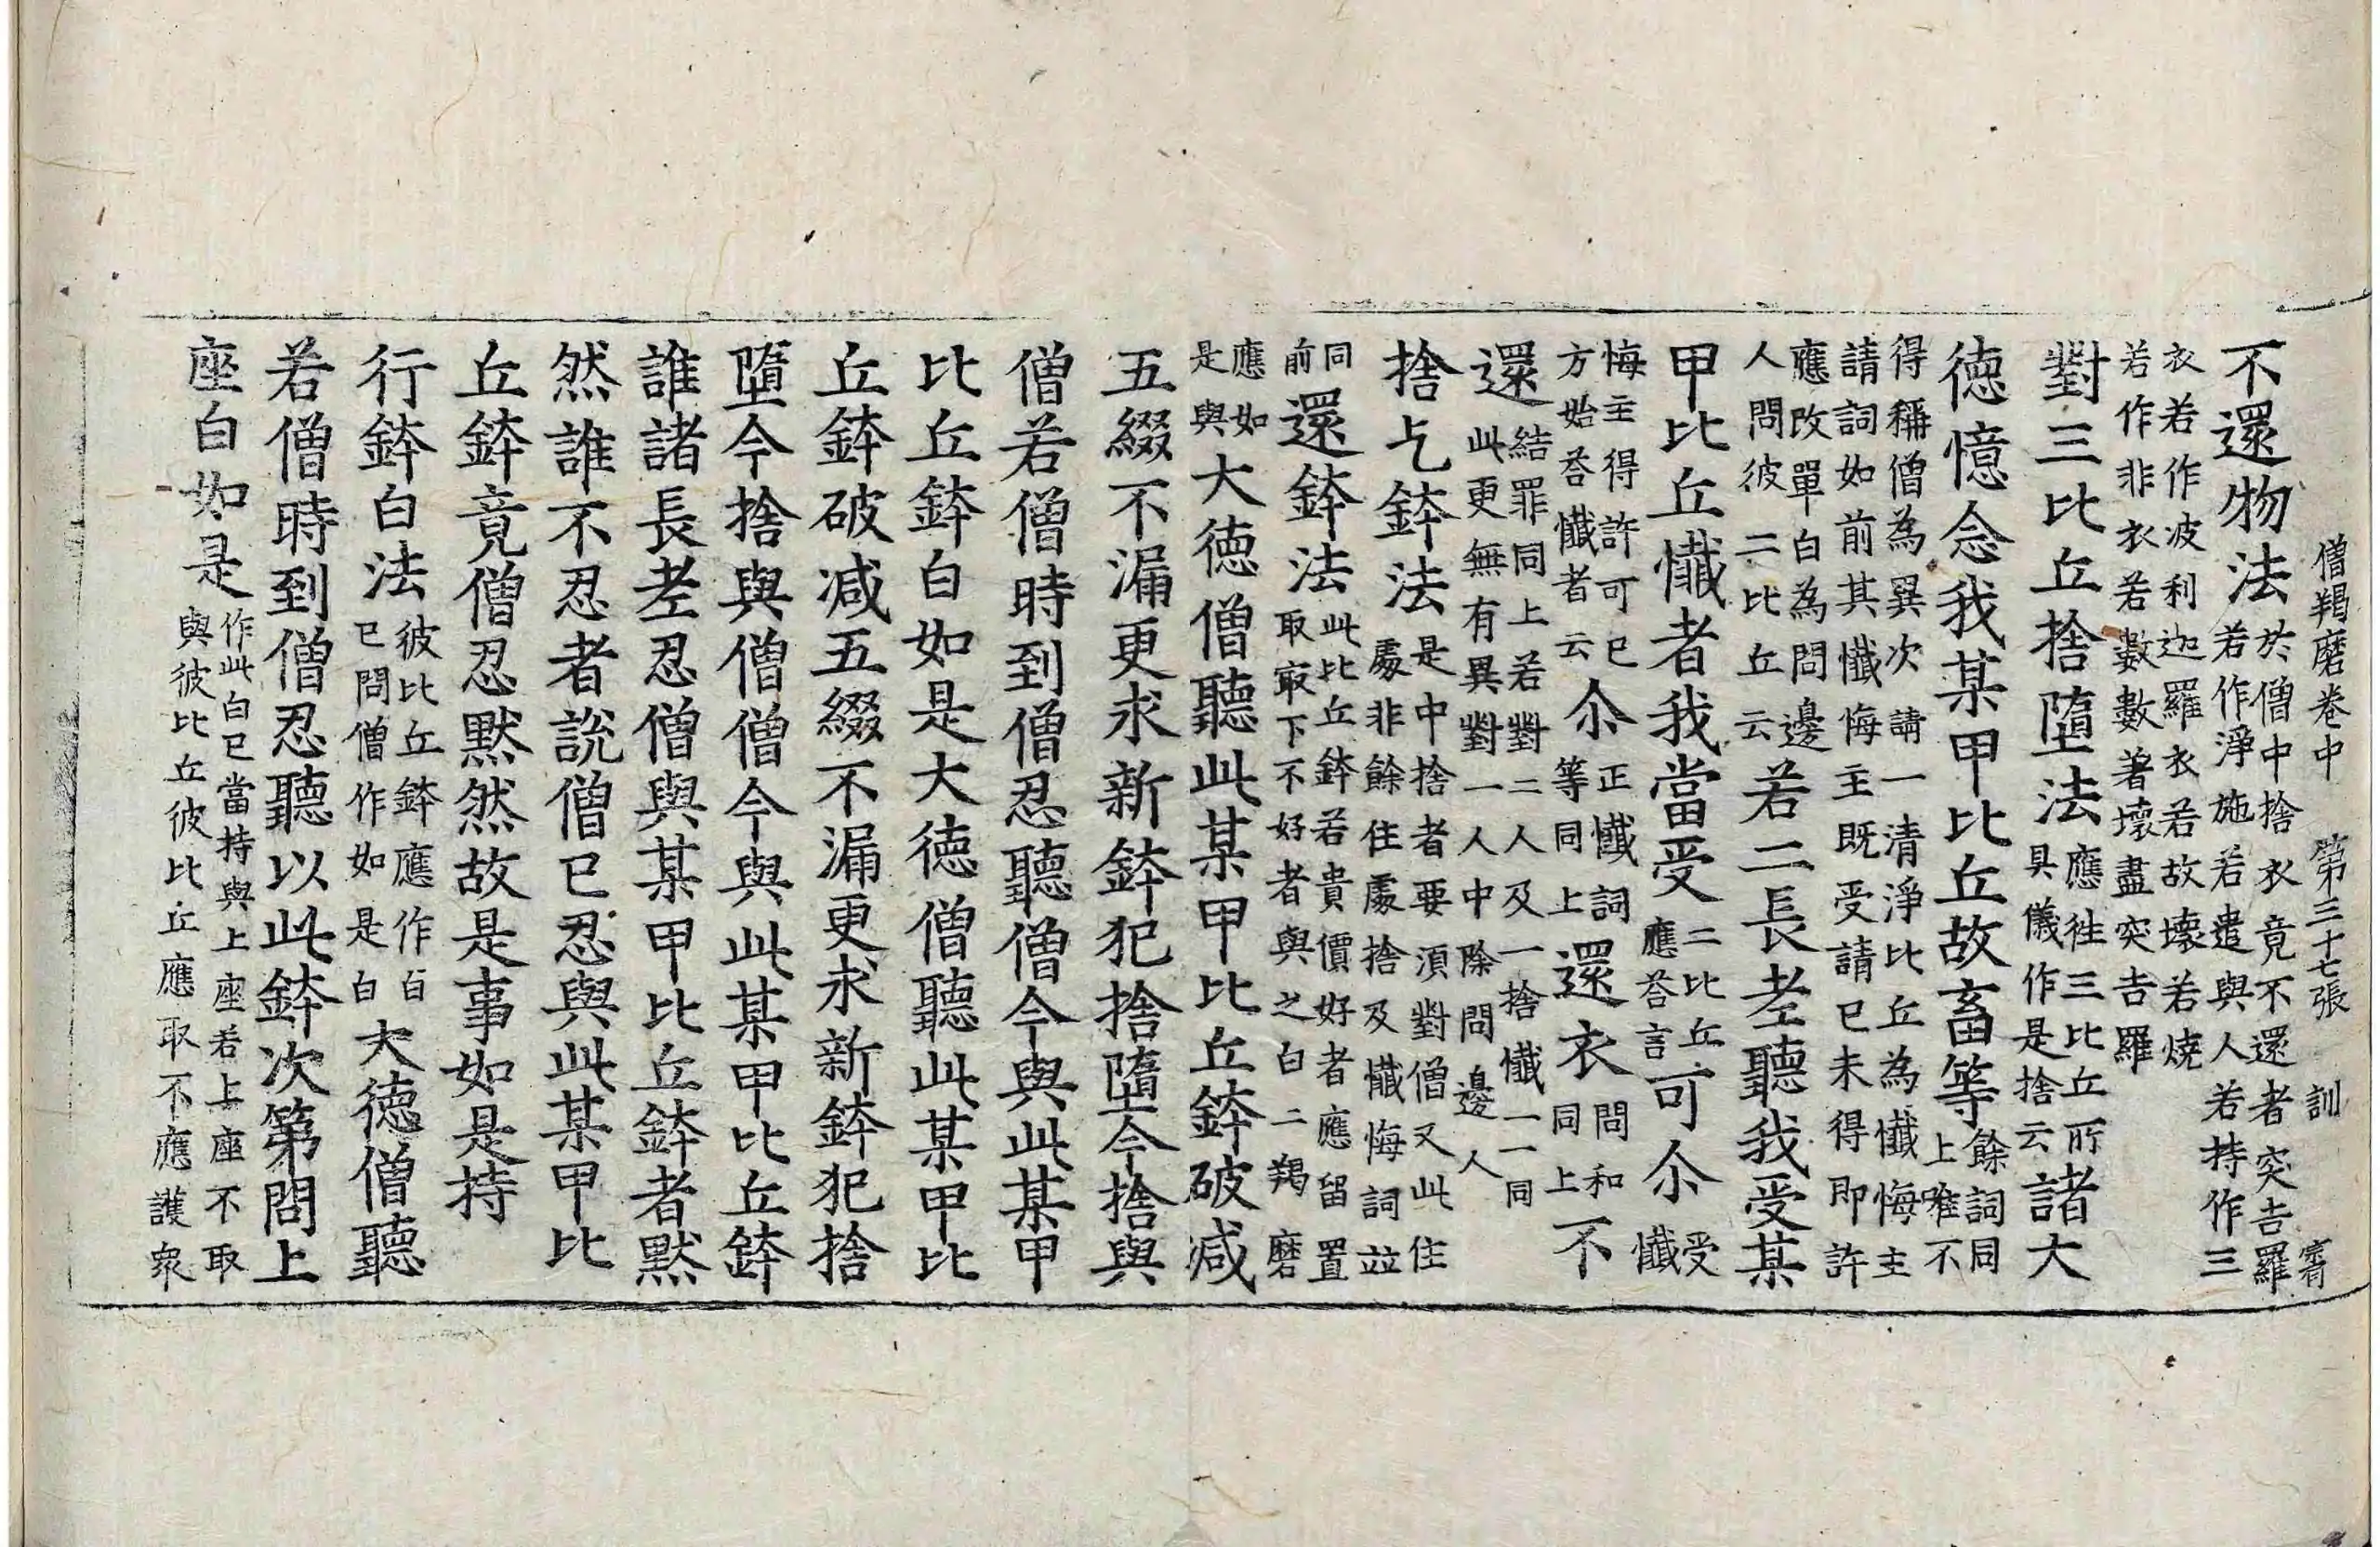 僧羯磨卷中 第三十七張 訓
不還物法於僧中捨衣竟不還者突吉羅若作淨施若遣與人若持作三
衣若作波利迦羅衣若故壞若燒若作非衣若數數著壞盡突吉羅
對三比丘捨墮法應往三比丘所具儀作是捨云諸大
德憶念我某甲比丘故畜等餘詞同上唯不
得稱僧為異次請一清淨比丘為懺悔主請詞如前其懺悔主既受請已未得即許
應改單白為問邊人問彼二比丘云若二長老聽我受某
甲比丘懺者我當受二比丘應荅言可尒受懺
悔主得許可已方始荅懺者云尒正懺詞等同上還衣問和同上不
還結罪同上若對二人及一捨懺一一同此更無有異對一人中除問邊人
捨乞鉢法是中捨者要須對僧又此住處非餘住處捨及懺悔詞竝
同前還鉢法此比丘鉢若貴價好者應留置取冣下不好者與之白二羯磨
應如是與大德僧聽此某甲比丘鉢破減
五綴不漏更求新鉢犯捨墮今捨與
僧若僧時到僧忍聽僧今與此某甲
比丘鉢白如是大德僧聽此某甲比
丘鉢破減五綴不漏更求新鉢犯捨
墮今捨與僧僧今與此某甲比丘鉢
誰諸長老忍僧與某甲比丘鉢者默
然誰不忍者說僧已忍與此某甲比
丘鉢竟僧忍默然故是事如是持
行鉢白法彼比丘鉢應作白已問僧作如是白大德僧聽
若僧時到僧忍聽以此鉢次第問上
座白如是作此白已當持與上座若上座不取與彼比丘彼比丘應取不應護衆